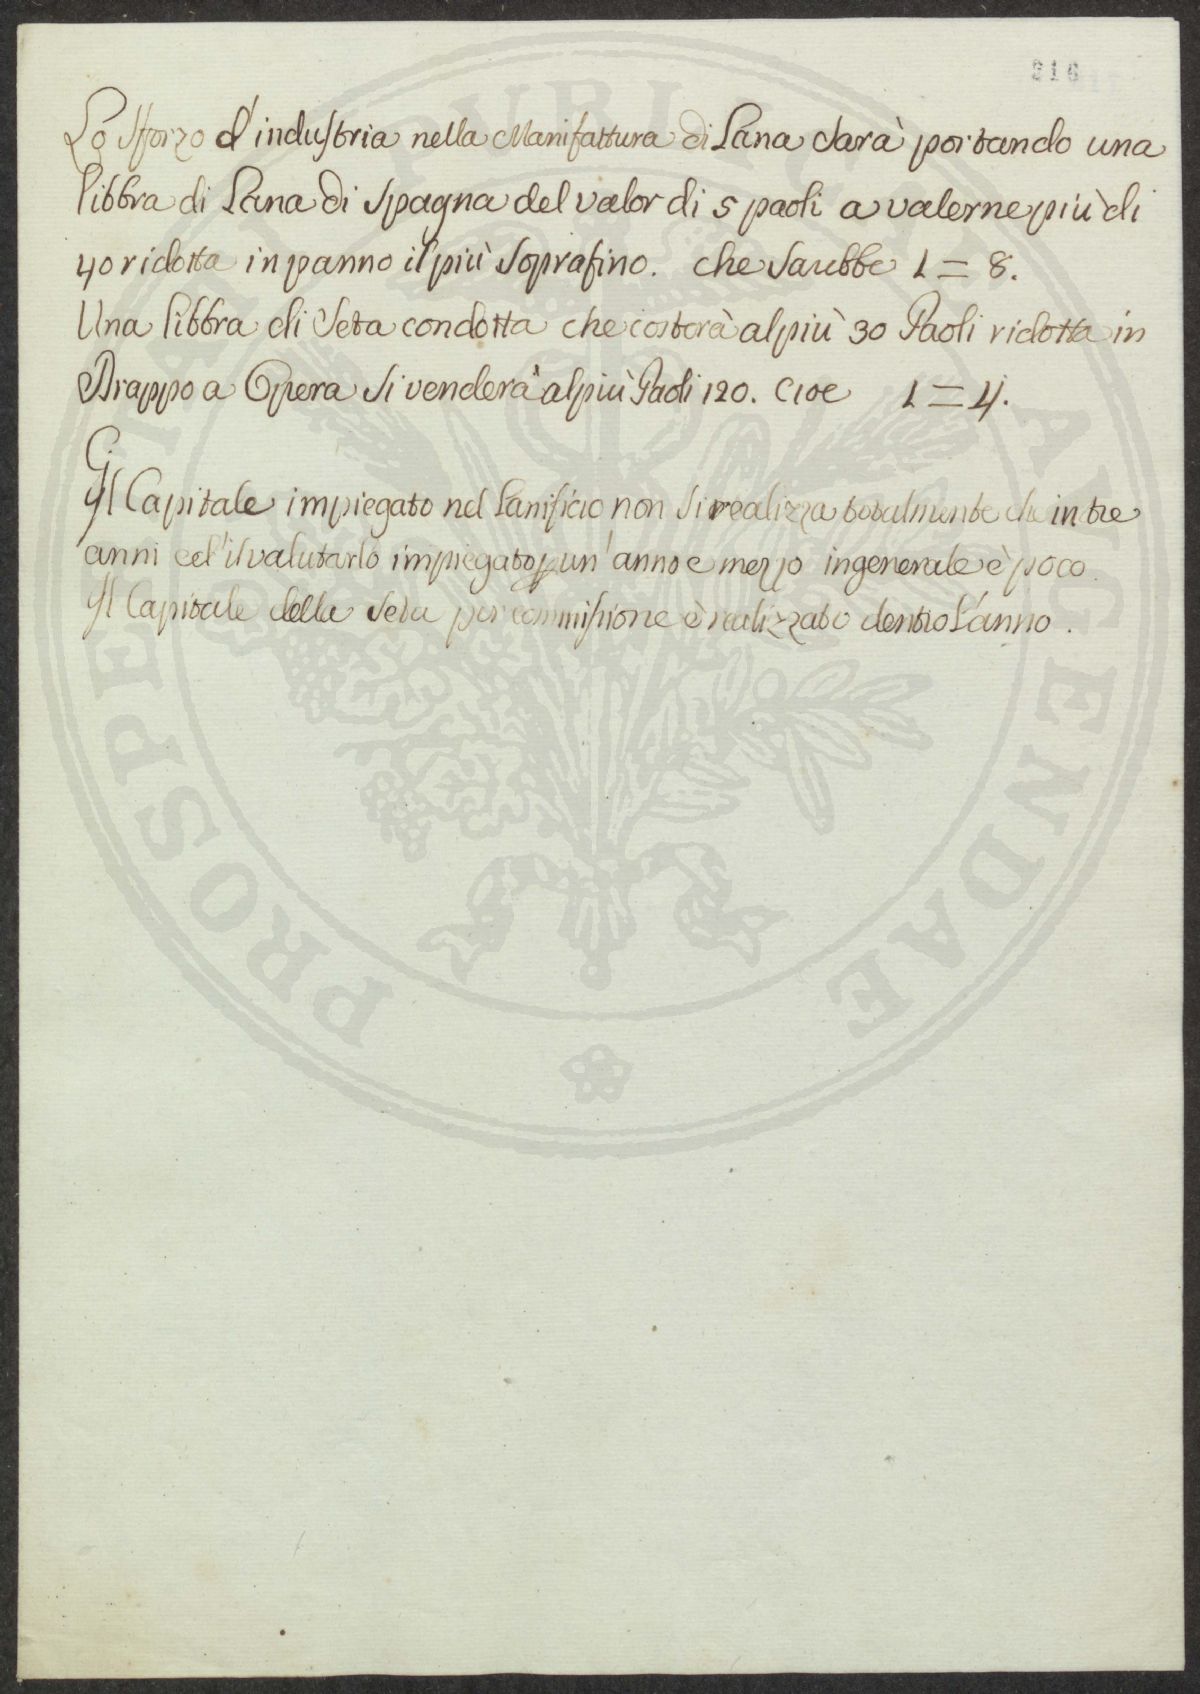 216
Lo sforzo d'industria nella Manifattura di Lana sarà portando una
libbra di Lana di Spagna del valor di 5 paoli a valerne più di
40 ridotta in panno il più soprafino. che sarebbe 1 = 8.
Una libbra di Seta condotta che costerà al più 30 Paoli ridotta in
Drappo a Opera si venderà al più Paoli 120. Cioe 1 = 4.
G.
Il Capitale impiegato nel Lanificio non si realizza totalmente che in tre
anni ed il valutarlo impiegato p un'anno e mezzo in generale è poco.
Il Capitale della Seta per commissione è realizzato dentro L'anno.
PROSPERITATI PUBLICAE AUGENDAE